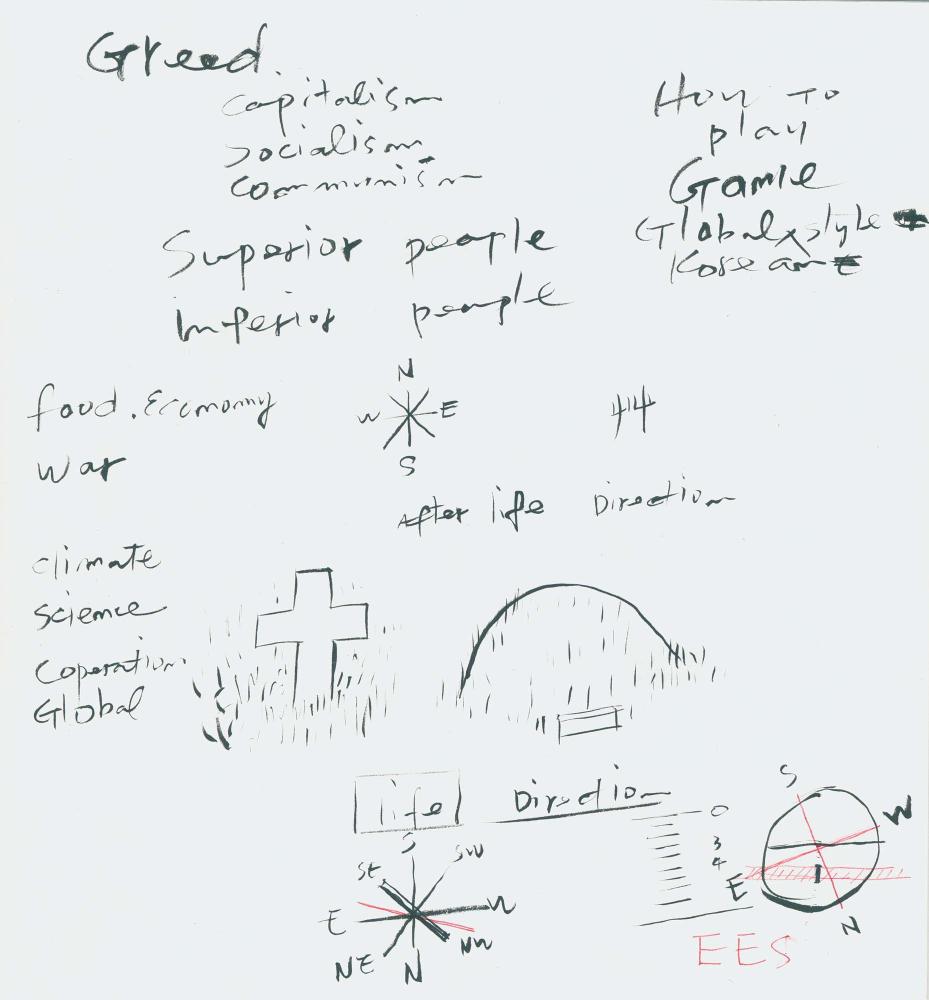 Greed.
capitalism
socialism
communism
How To
play
Game
Global style
Korean
Superior people
Inferior people
food. Economy
War
N
W E
S
After life Direction
climate
science
Coperation
Global
life Direction
S
SE SW
E W
NE N NW
0
3
4
S
W
E
N
EES